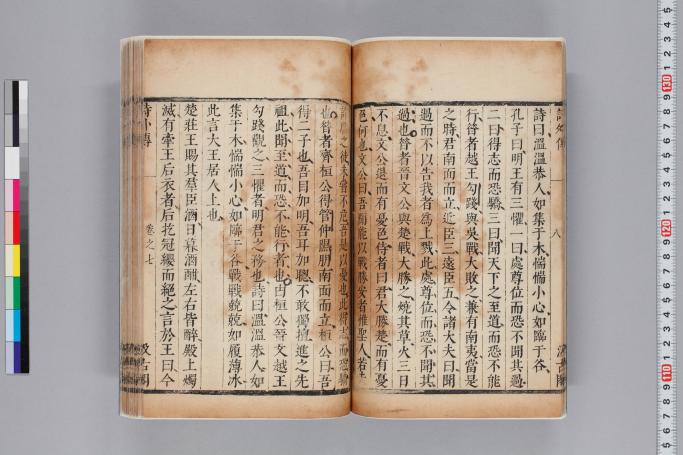 詩曰溫溫恭人如集于木惴惴小心如臨于谷
孔子曰明王有三懼一曰處尊位而恐不聞其過
二曰得志而恐驕三曰聞天下之至道而恐不能
行昔者越王勾踐與吳戰大敗之兼有南夷當是
之時君南面而立近臣三遠臣五令諸大夫曰聞
過而不以告我者為上戮此處尊位而恐不聞其
過也昔者晉文公與楚戰大勝之燒其草火三日
不息文公退而有憂色侍者曰君大勝楚而有憂
色何也文公曰吾聞能以戰勝安者惟聖人若夫
詐勝之徒未嘗不危吾是以憂也此得志而恐驕
也昔者齊桓公得管仲隰朋南面而立桓公曰吾
得二子也吾目加明吾耳加聰不敢獨擅進之先
祖此聞至道而恐不能行者也由桓公晉文越王
勾踐觀之三懼者明君之務也詩曰溫溫恭人如
集于木惴惴小心如臨于谷戰戰兢兢如履薄冰
此言大王居人上也
楚莊王賜其羣臣酒日暮酒酣左右皆醉殿上燭
滅有牽王后衣者后扢冠纓而絕之言於王曰今
詩外傳
卷之七
八
汲古閣
110
120
130